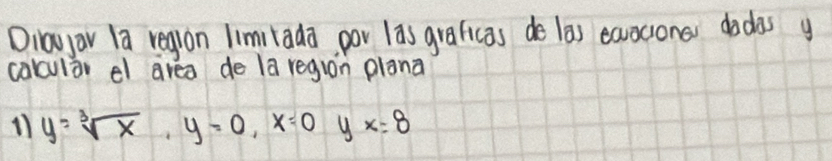 Dibujar la region limitada por las graficas de las ecuaciones dadas y
calcular el área de la región plana
1) y = ∛x , y = 0, x = 0 y x = 8